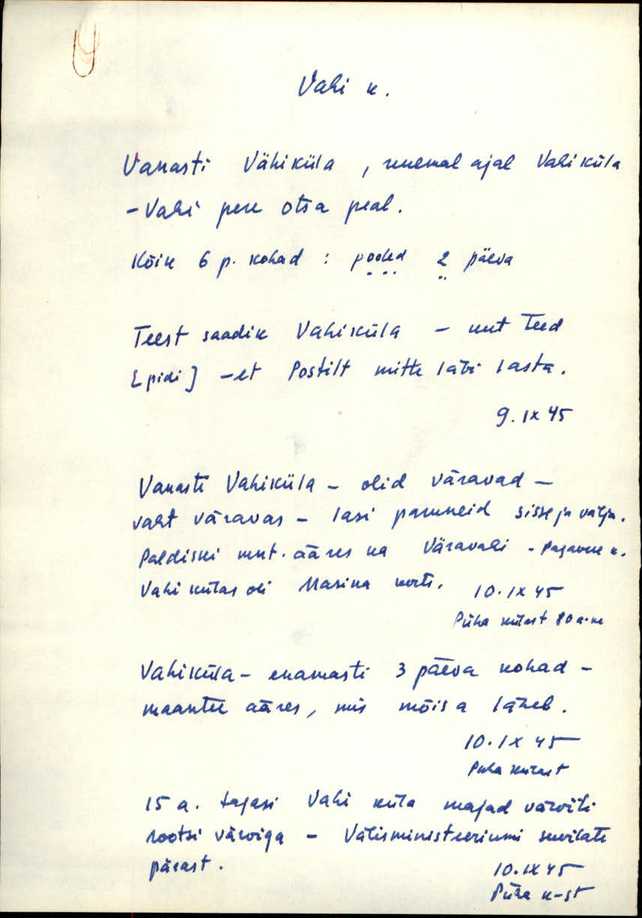 Vahi k.
Vanasti Vähiküla, uuemal ajal Vahiküla
- Vahi pere otsa peal.
Kõik 6 p. kohad : pooled 2 päeva
Teest saadik Vahiküla - mnt teed
[pidi] - et Postilt mitte läbi lasta.
9. IX 45
Vanasti Vahiküla - olid väravad -
vaht väravas - lasi paruneid sisse ja välja.
Paldiski mnt. ääres ka Väravahi -
Vahi külas oli Masina
10. IX 45
Püha külast 80 a.
Vahiküla - enamasti 3 päeva kohad -
maantee ääres, mis mõisa läheb.
10. IX 45
Püha külast
15 a. tagasi Vahi küla majad värviti
rootsi värviga - Välisministeeriumi
pärast.
10. IX 45
Püha k-st